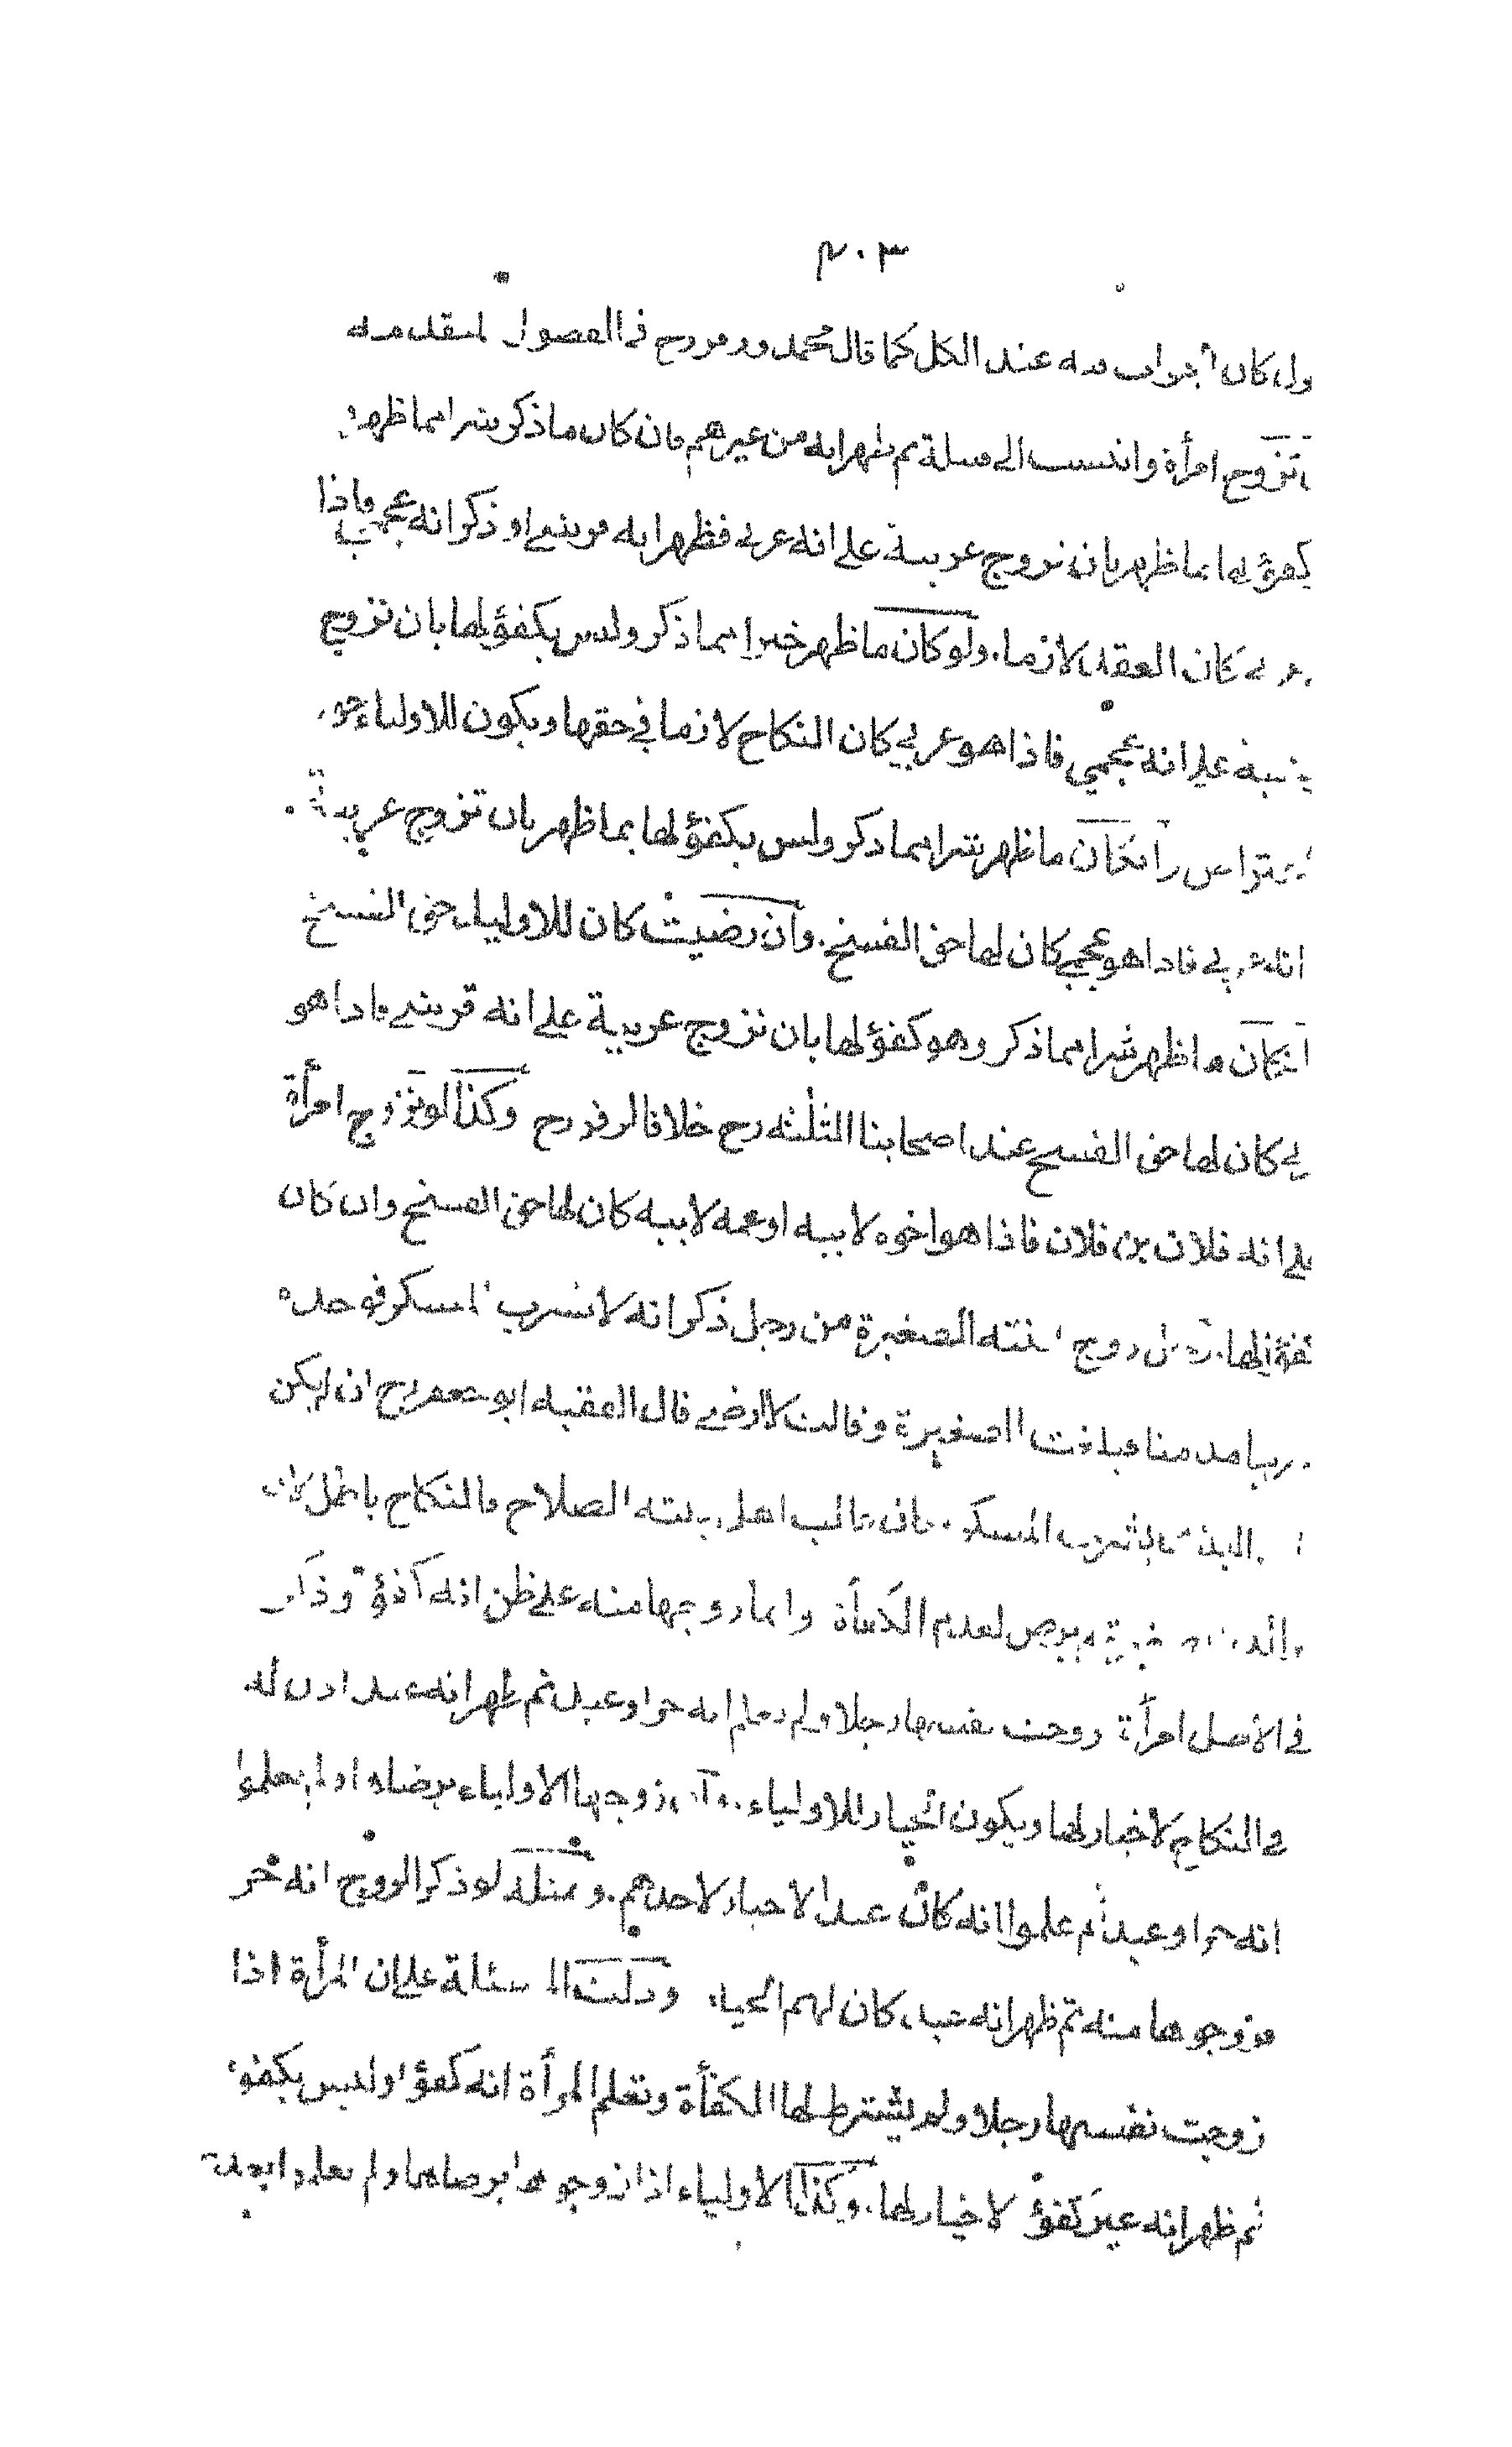 ٢٠٣
كان الجواب فيه عند الكل كما قال محمد وزفر رح في الفصول المتقدمة
تزوج امرأة وانتسب الى قبيلة ثم ظهر انه من غيرهم فان كان ما ذكر شرا مما ظهر
كفؤ لها بما ظهر بان تزوج عربية على انه عربي فظهر انه قريشي او ذكر انه عجمي فاذا
عربي كان العقد لازما. ولو كان ما ظهر خيرا مما ذكر وليس بكفؤ لها بان تزوج
على انه عجمي فاذا هو عربي كان النكاح لازما في حقها ويكون للاولياء حق
الاعتراض وان كان ما ظهر شرا مما ذكر وليس بكفؤ لها بما ظهر بان تزوج عربية
انه عربي فاذا هو عجمي كان لها حق الفسخ. وان رضيت كان للاولياء حق الفسخ
ان كان ما ظهر شرا مما ذكر وهو كفؤ لها بان تزوج عربية على انه قريشي فاذا هو
بي كان لها حق الفسخ عند اصحابنا الثلثة رح خلافا لزفر رح وكذا لو تزوج امرأة
على انه فلان بن فلان فاذا هو اخوه لابيه او عمه لابيه كان لها حق الفسخ وان كان
كفؤا لها. رجل زوج ابنته الصغيرة من رجل ذكر انه لا يشرب المسكر فوجده
شريبا مدمنا فبلغت الصغيرة وقالت لا ارضى قال الفقيه ابو جعفر رح ان لم يكن
البنت يشرب المسكر وكان غالب اهل بيته الصلاح فالنكاح باطل لان
والد الصغيرة لم يرض لعدم الكفاءة وانما زوجها منه على ظن انه كفؤ وذكر
في الاصل امرأة زوجت نفسها رجلا ولم تعلم انه حر او عبد ثم ظهر انه عبد اذن له
في النكاح لا خيار لها ويكون الخيار للاولياء. وان زوجها الاولياء برضاها ولم يعلموا
انه حر او عبد ثم علموا انه كان عبدا لا خيار لاحدهم. وبمثله لو ذكر الزوج انه حر
فزوجوها منه ثم ظهر انه عبد كان لهم الخيار ودلت المسئلة على ان المرأة اذا
زوجت نفسها رجلا ولم يشترط لها الكفأة وتعلم المرأة انه كفؤ او ليس بكفؤ
ثم ظهر انه غير كفؤ لا خيار لها. وكذا الاولياء اذا زوجوها برضاها ولم يعلموا بعدم